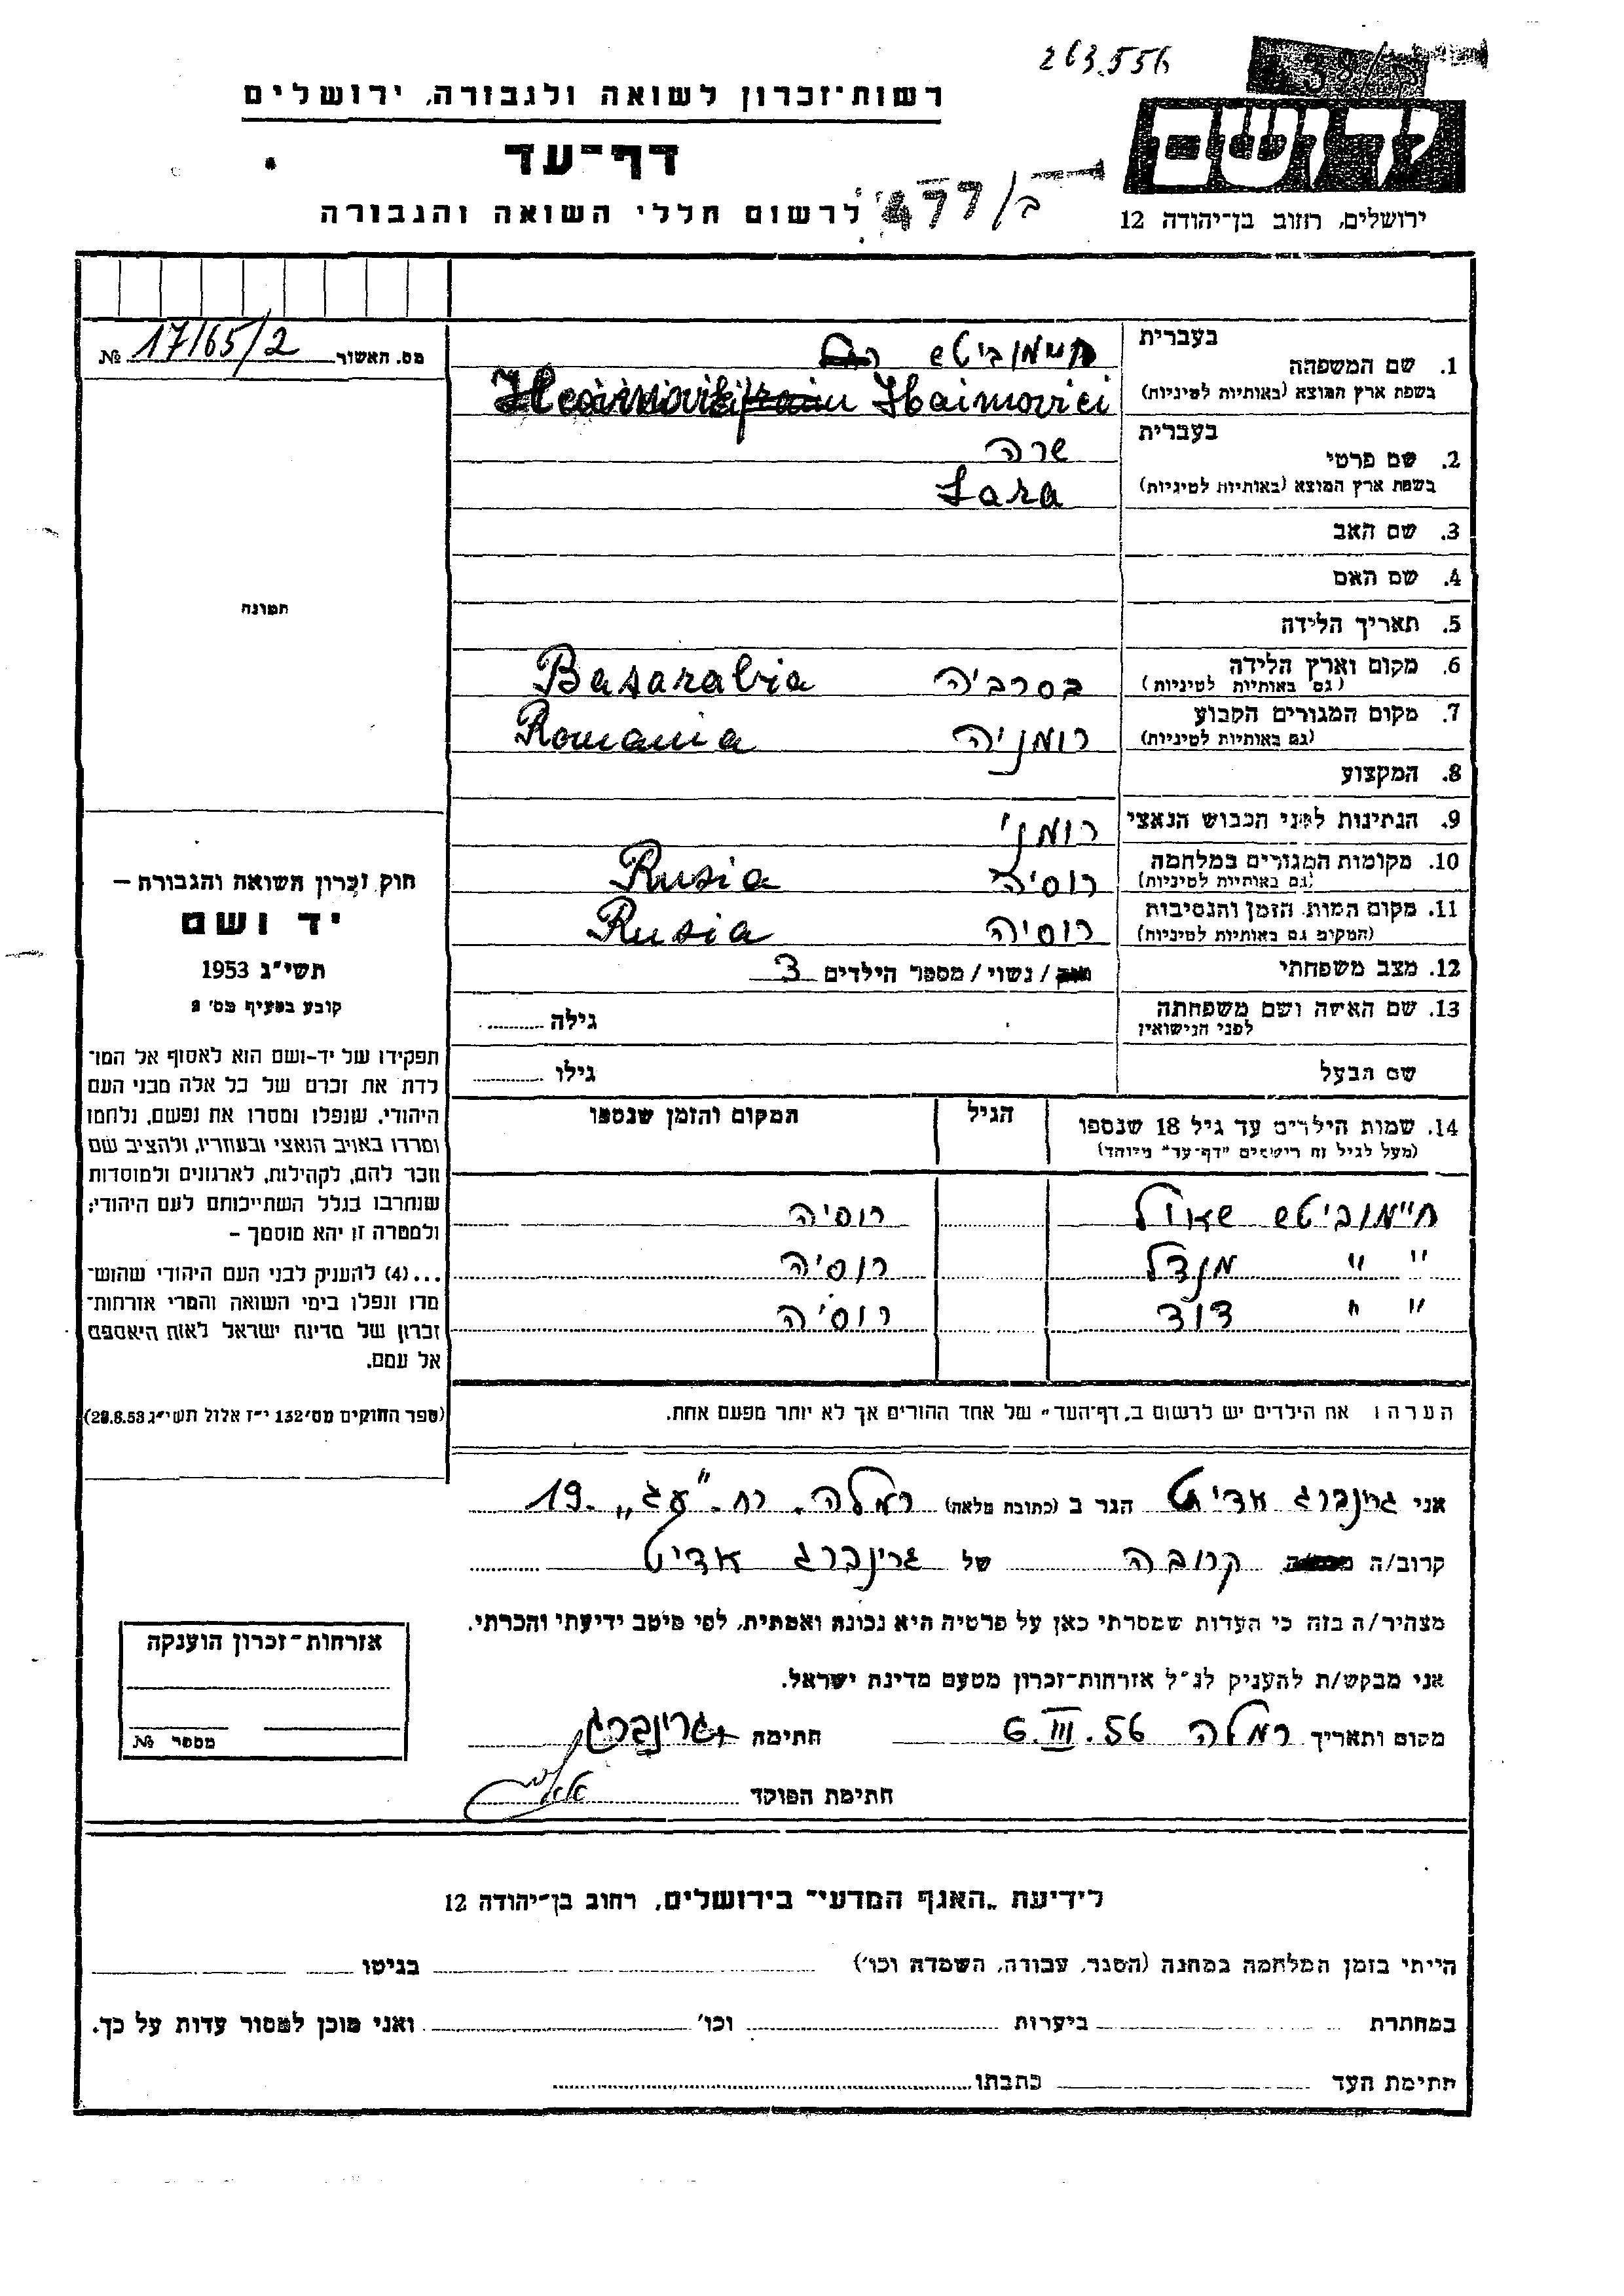 263.556
רשות־זכרון לשואה ולגבורה, ירושלים
דף־עד
ידושם
לרשום חללי השואה והגבורה
ב/477
ירושלים, רחוב בן־יהודה 12
בעברית
חיימוביטש
מס. האשור 17/65/2 №
1. שם המשפחה
בשפת ארץ המוצא (באותיות לטיניות)
Haimovici
בעברית
שרה
2. שם פרטי
בשפת ארץ המוצא (באותיות לטיניות)
Sara
3. שם האב
4. שם האם
תמונה
5. תאריך הלידה
6. מקום וארץ הלידה
(גם באותיות לטיניות)
בסרביה Basarabia
7. מקום המגורים הקבוע
(גם באותיות לטיניות)
רומניה Romania
8. המקצוע
9. הנתינות לפני הכבוש הנאצי
רומני
10. מקומות המגורים במלחמה
(גם באותיות לטיניות)
רוסיה Rusia
11. מקום המות, הזמן והנסיבות
(המקום גם באותיות לטיניות)
רוסיה Rusia
12. מצב משפחתי
/ נשוי / מספר הילדים 3
13. שם האשה ושם משפחתה
לפני הנישואין
גילה
שם הבעל
גילו
חוק זכרון השואה והגבורה –
יד ושם
תשי"ג 1953
קובע בסעיף מס' 2
תפקידו של יד-ושם הוא לאסוף אל המו־
לדת את זכרם של כל אלה מבני העם
היהודי, שנפלו ומסרו את נפשם, נלחמו
ומרדו באויב הנאצי ובעוזריו, ולהציב שם
וזכר להם, לקהילות, לארגונים ולמוסדות
שנחרבו בגלל השתייכותם לעם היהודי;
ולמטרה זו יהא מוסמך –
...(4) להעניק לבני העם היהודי שהוש־
מדו ונפלו בימי השואה והמרי אזרחות־
זכרון של מדינת ישראל לאות היאספם
אל עמם.
(ספר החוקים מס' 132 י"ז אלול תשי"ג 28.8.53)
14. שמות הילדים עד גיל 18 שנספו
(מעל לגיל זה רישמים "דף־עד" מיוחד)
הגיל
המקום והזמן שנספו
חיימוביטש שאול רוסיה
" " מנדל רוסיה
" " דוד רוסיה
הערה: את הילדים יש לרשום ב"דף־העד" של אחד ההורים אך לא יותר מפעם אחת.
אני גרינברג אדיט הגר ב (כתובת מלאה) רמלה. רח. "עג" 19.
קרוב/ה קרובה של גרינברג אדיט
מצהיר/ה בזה כי העדות שמסרתי כאן על פרטיה היא נכונה ואמתית, לפי מיטב ידיעתי והכרתי.
אני מבקש/ת להעניק לנ"ל אזרחות־זכרון מטעם מדינת ישראל.
מקום ותאריך רמלה 6.III.56 חתימה גרינברג
חתימת הפוקד
אזרחות־זכרון הוענקה
מספר №
לידיעת „האגף המדעי" בירושלים, רחוב בן־יהודה 12
הייתי בזמן המלחמה במחנה (הסגר, עבודה, השמדה וכו') בגיטו
במחתרת ביערות וכו' ואני מוכן למסור עדות על כך.
חתימת העד כתבתו